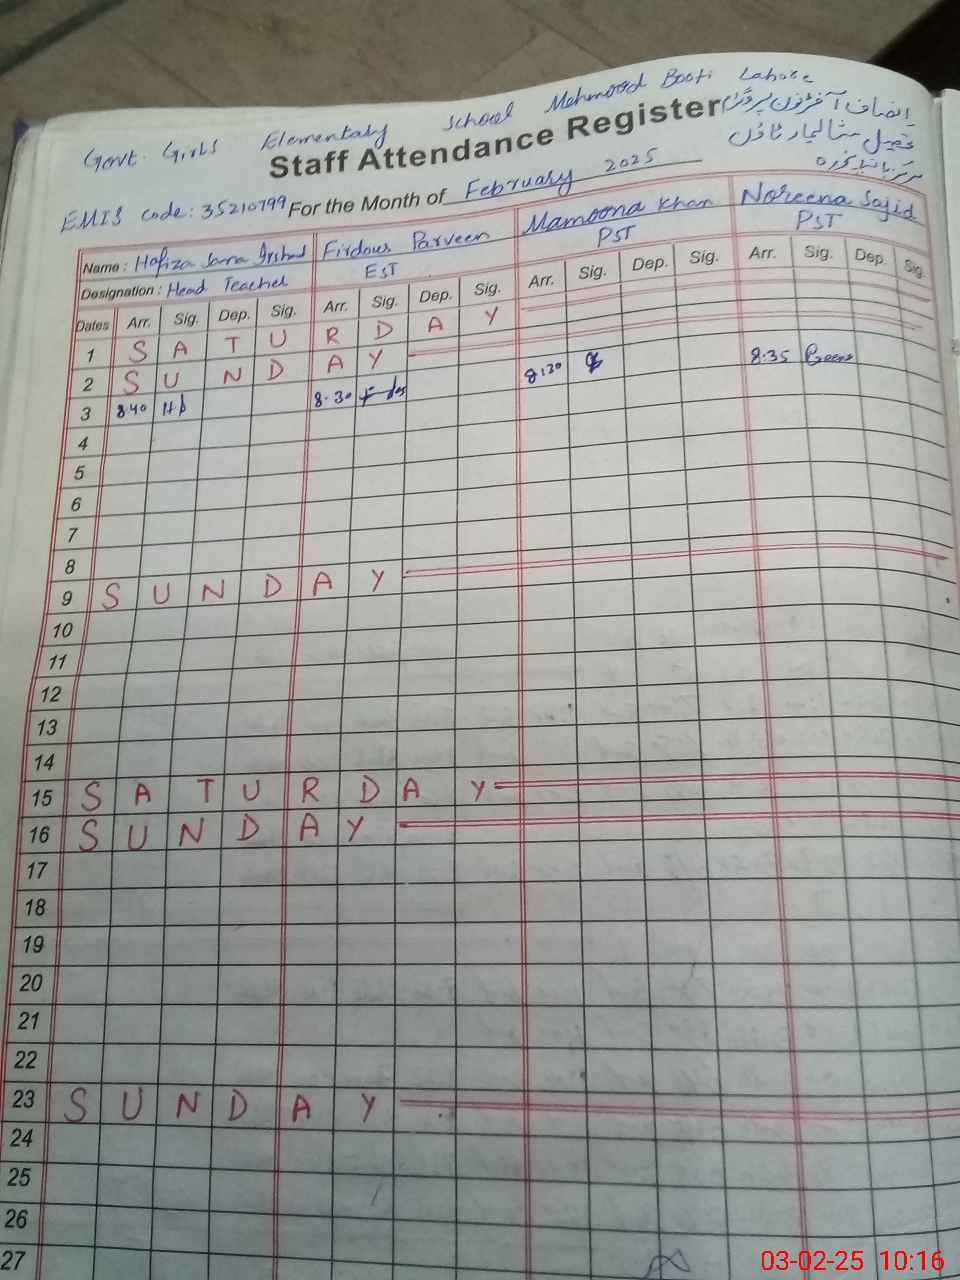 Govt. Girls Elementary School Mehmood Booti Lahore
Staff Attendance Register
انصاف آفٹرنون پروگرام
تحصیل شالیمار ٹاؤن
مرکز
EMIS Code: 35210799 For the Month of February 2025
Name: Hafiza Sana Irshad Firdous Parveen Mamoona Khan Noreena Sajid
Designation: Head Teacher EST PST PST
Dates Arr. Sig. Dep. Sig. Arr. Sig. Dep. Sig. Arr. Sig. Dep. Sig. Arr. Sig. Dep. Sig.
1 SATURDAY
2 SUNDAY
3 8:40 8:30 8:30 8:35
4
5
6
7
8
9 SUNDAY
10
11
12
13
14
15 SATURDAY
16 SUNDAY
17
18
19
20
21
22
23 SUNDAY
24
25
26
27
03-02-25 10:16